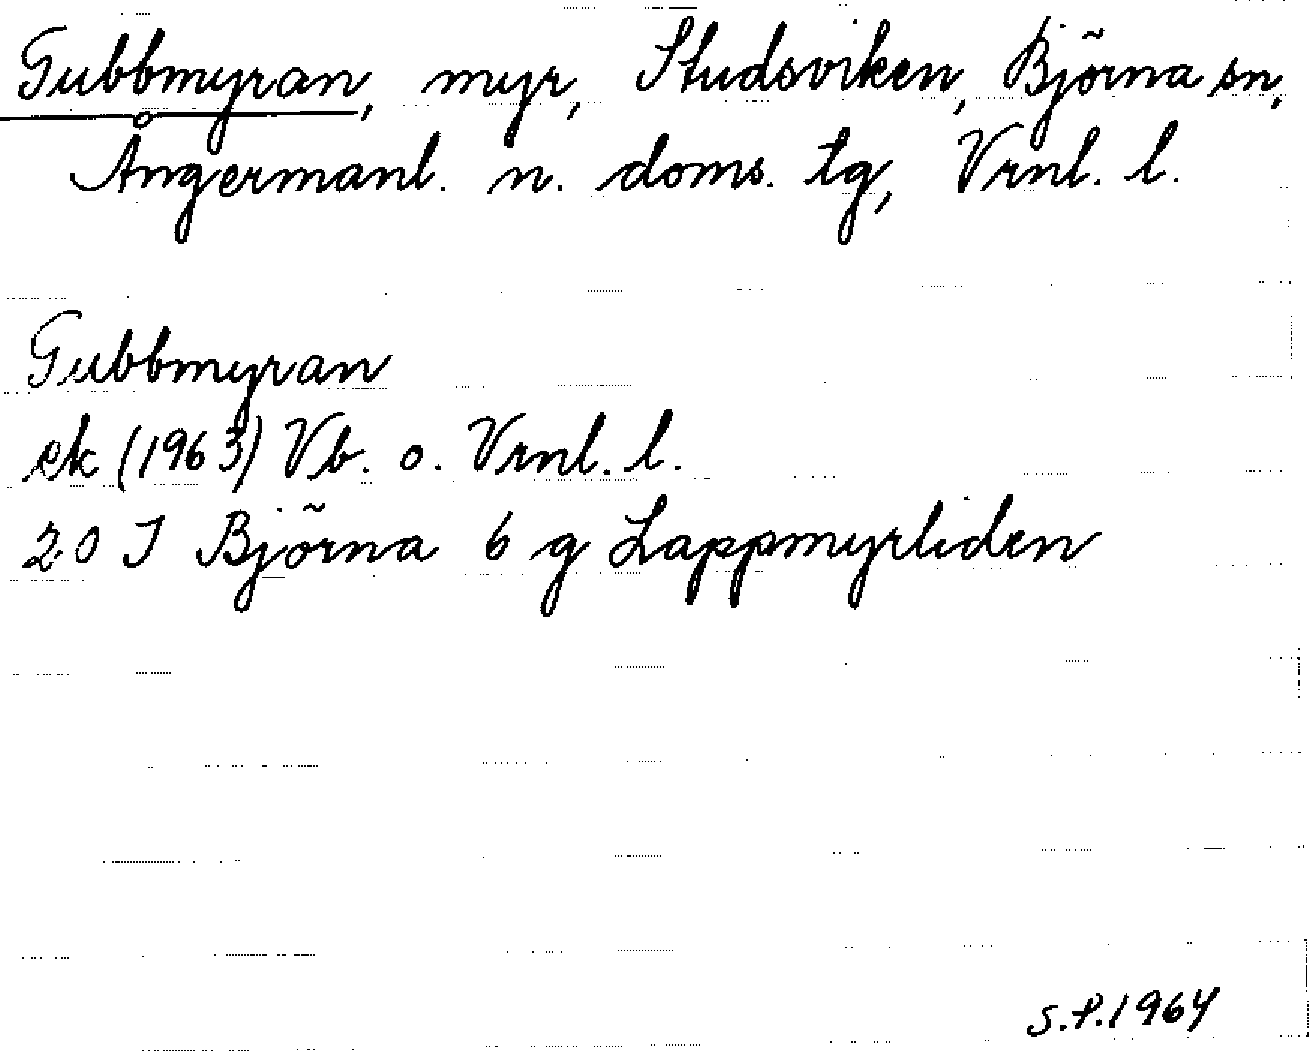 Gubbmyran, myr, Studsviken, Björna sn,
Ångermanl. n. doms. tg, Vrnl. l.
Gubbmyran
ek (1963) Vb. o. Vrnl. l.
20 I Björna 6 g Lappmyrliden
S.P.1964